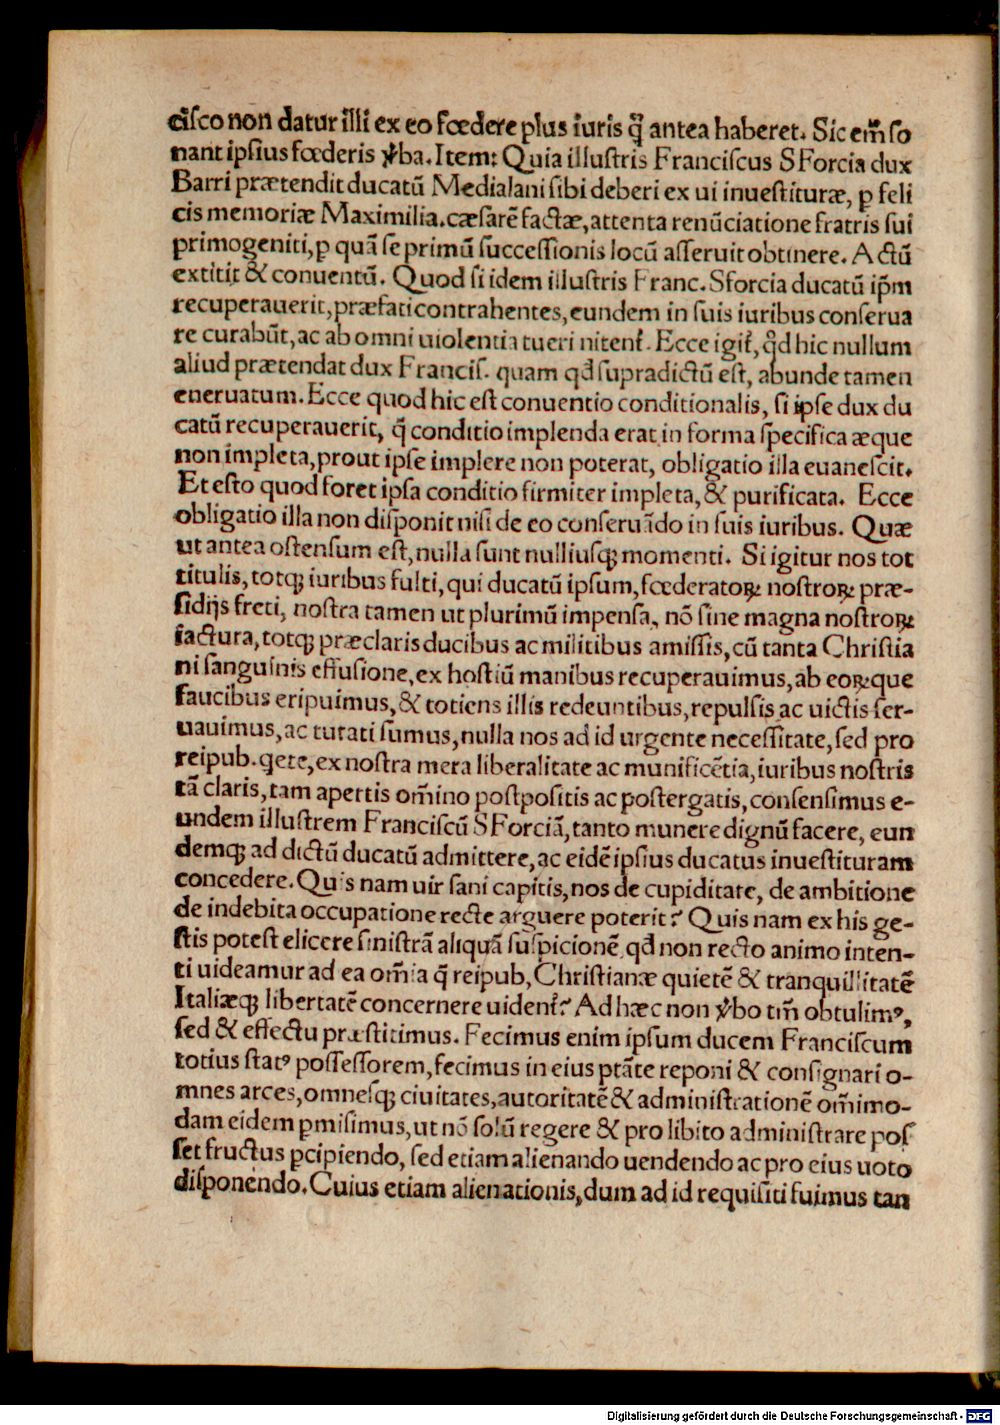 ciſco non datur illi ex eo fœdere plus iuris q̃ antea haberet. Sic em̃ ſo
nant ipſius fœderis ꝟba. Item: Quia illuſtris Franciſcus SForcia dux
Barri prætendit ducatũ Medialani ſibi deberi ex ui inueſtituræ, ꝑ feli
cis memoriæ Maximilia.cæſarẽ factæ, attenta renũciatione fratris ſui
primogeniti, ꝑ quã ſe primũ ſucceſſionis locũ aſſeruit obtinere. Actũ
extitit & conuentũ. Quod ſi idem illuſtris Franc. Sforcia ducatũ ip̃m
recuperauerit, præfati contrahentes, eundem in ſuis iuribus conſerua
re curabũt, ac ab omni uiolentia tueri nitent̃. Ecce igit̃, qđ hic nullum
aliud prætendat dux Franciſ. quam qđ ſupradictũ eſt, abunde tamen
eneruatum. Ecce quod hic eſt conuentio conditionalis, ſi ipſe dux du
catũ recuperauerit, q̃ conditio implenda erat in forma ſpecifica æque
non impleta, prout ipſe implere non poterat, obligatio illa euaneſcit.
Et eſto quod foret ipſa conditio firmiter impleta, & purificata. Ecce
obligatio illa non diſponit niſi de eo conſeruãdo in ſuis iuribus. Quæ
ut antea oſtenſum eſt, nulla ſunt nulliuſqꝫ momenti. Si igitur nos tot
titulis, totqꝫ iuribus fulti, qui ducatũ ipſum, fœderatoꝝ noſtroꝝ præ-
ſidijs freti, noſtra tamen ut plurimũ impenſa, nõ ſine magna noſtroꝝ
iactura, totqꝫ præclaris ducibus ac militibus amiſſis, cũ tanta Chriſtia
ni ſanguinis effuſione, ex hoſtiũ manibus recuperauimus, ab eoꝝque
faucibus eripuimus, & totiens illis redeuntibus, repulſis ac uictis ſer-
uauimus, ac tutati ſumus, nulla nos ad id urgente neceſſitate, ſed pro
reipub. q̃ete, ex noſtra mera liberalitate ac munificẽtia, iuribus noſtris
tã claris, tam apertis om̃ino poſtpoſitis ac poſtergatis, conſenſimus e-
undem illuſtrem Franciſcũ SForciã, tanto munere dignũ facere, eun
demqꝫ ad dictũ ducatũ admittere, ac eidẽ ipſius ducatus inueſtituram
concedere. Quis nam uir ſani capitis, nos de cupiditate, de ambitione
de indebita occupatione recte arguere poterit? Quis nam ex his ge-
ſtis poteſt elicere ſiniſtrã aliquã ſuſpicionẽ qđ non recto animo inten-
ti uideamur ad ea om̃ia q̃ reipub, Chriſtianæ quietẽ & tranquillitatẽ
Italiæqꝫ libertatẽ concernere uident̃? Ad hæc non ꝟbo tm̃ obtulimꝰ,
ſed & effectu præſtitimus. Fecimus enim ipſum ducem Franciſcum
totius ſtatꝰ poſſeſſorem, fecimus in eius ptãte reponi & conſignari o-
mnes arces, omneſqꝫ ciuitates, autoritatẽ & adminiſtrationẽ om̃imo-
dam eidem ꝑmiſimus, ut nõ ſolũ regere & pro libito adminiſtrare poſ
ſet fructus ꝑcipiendo, ſed etiam alienando uendendo ac pro eius uoto
diſponendo. Cuius etiam alienationis, dum ad id requiſiti fuimus tan
Digitalisierung gefördert durch die Deutsche Forschungsgemeinschaft - DFG